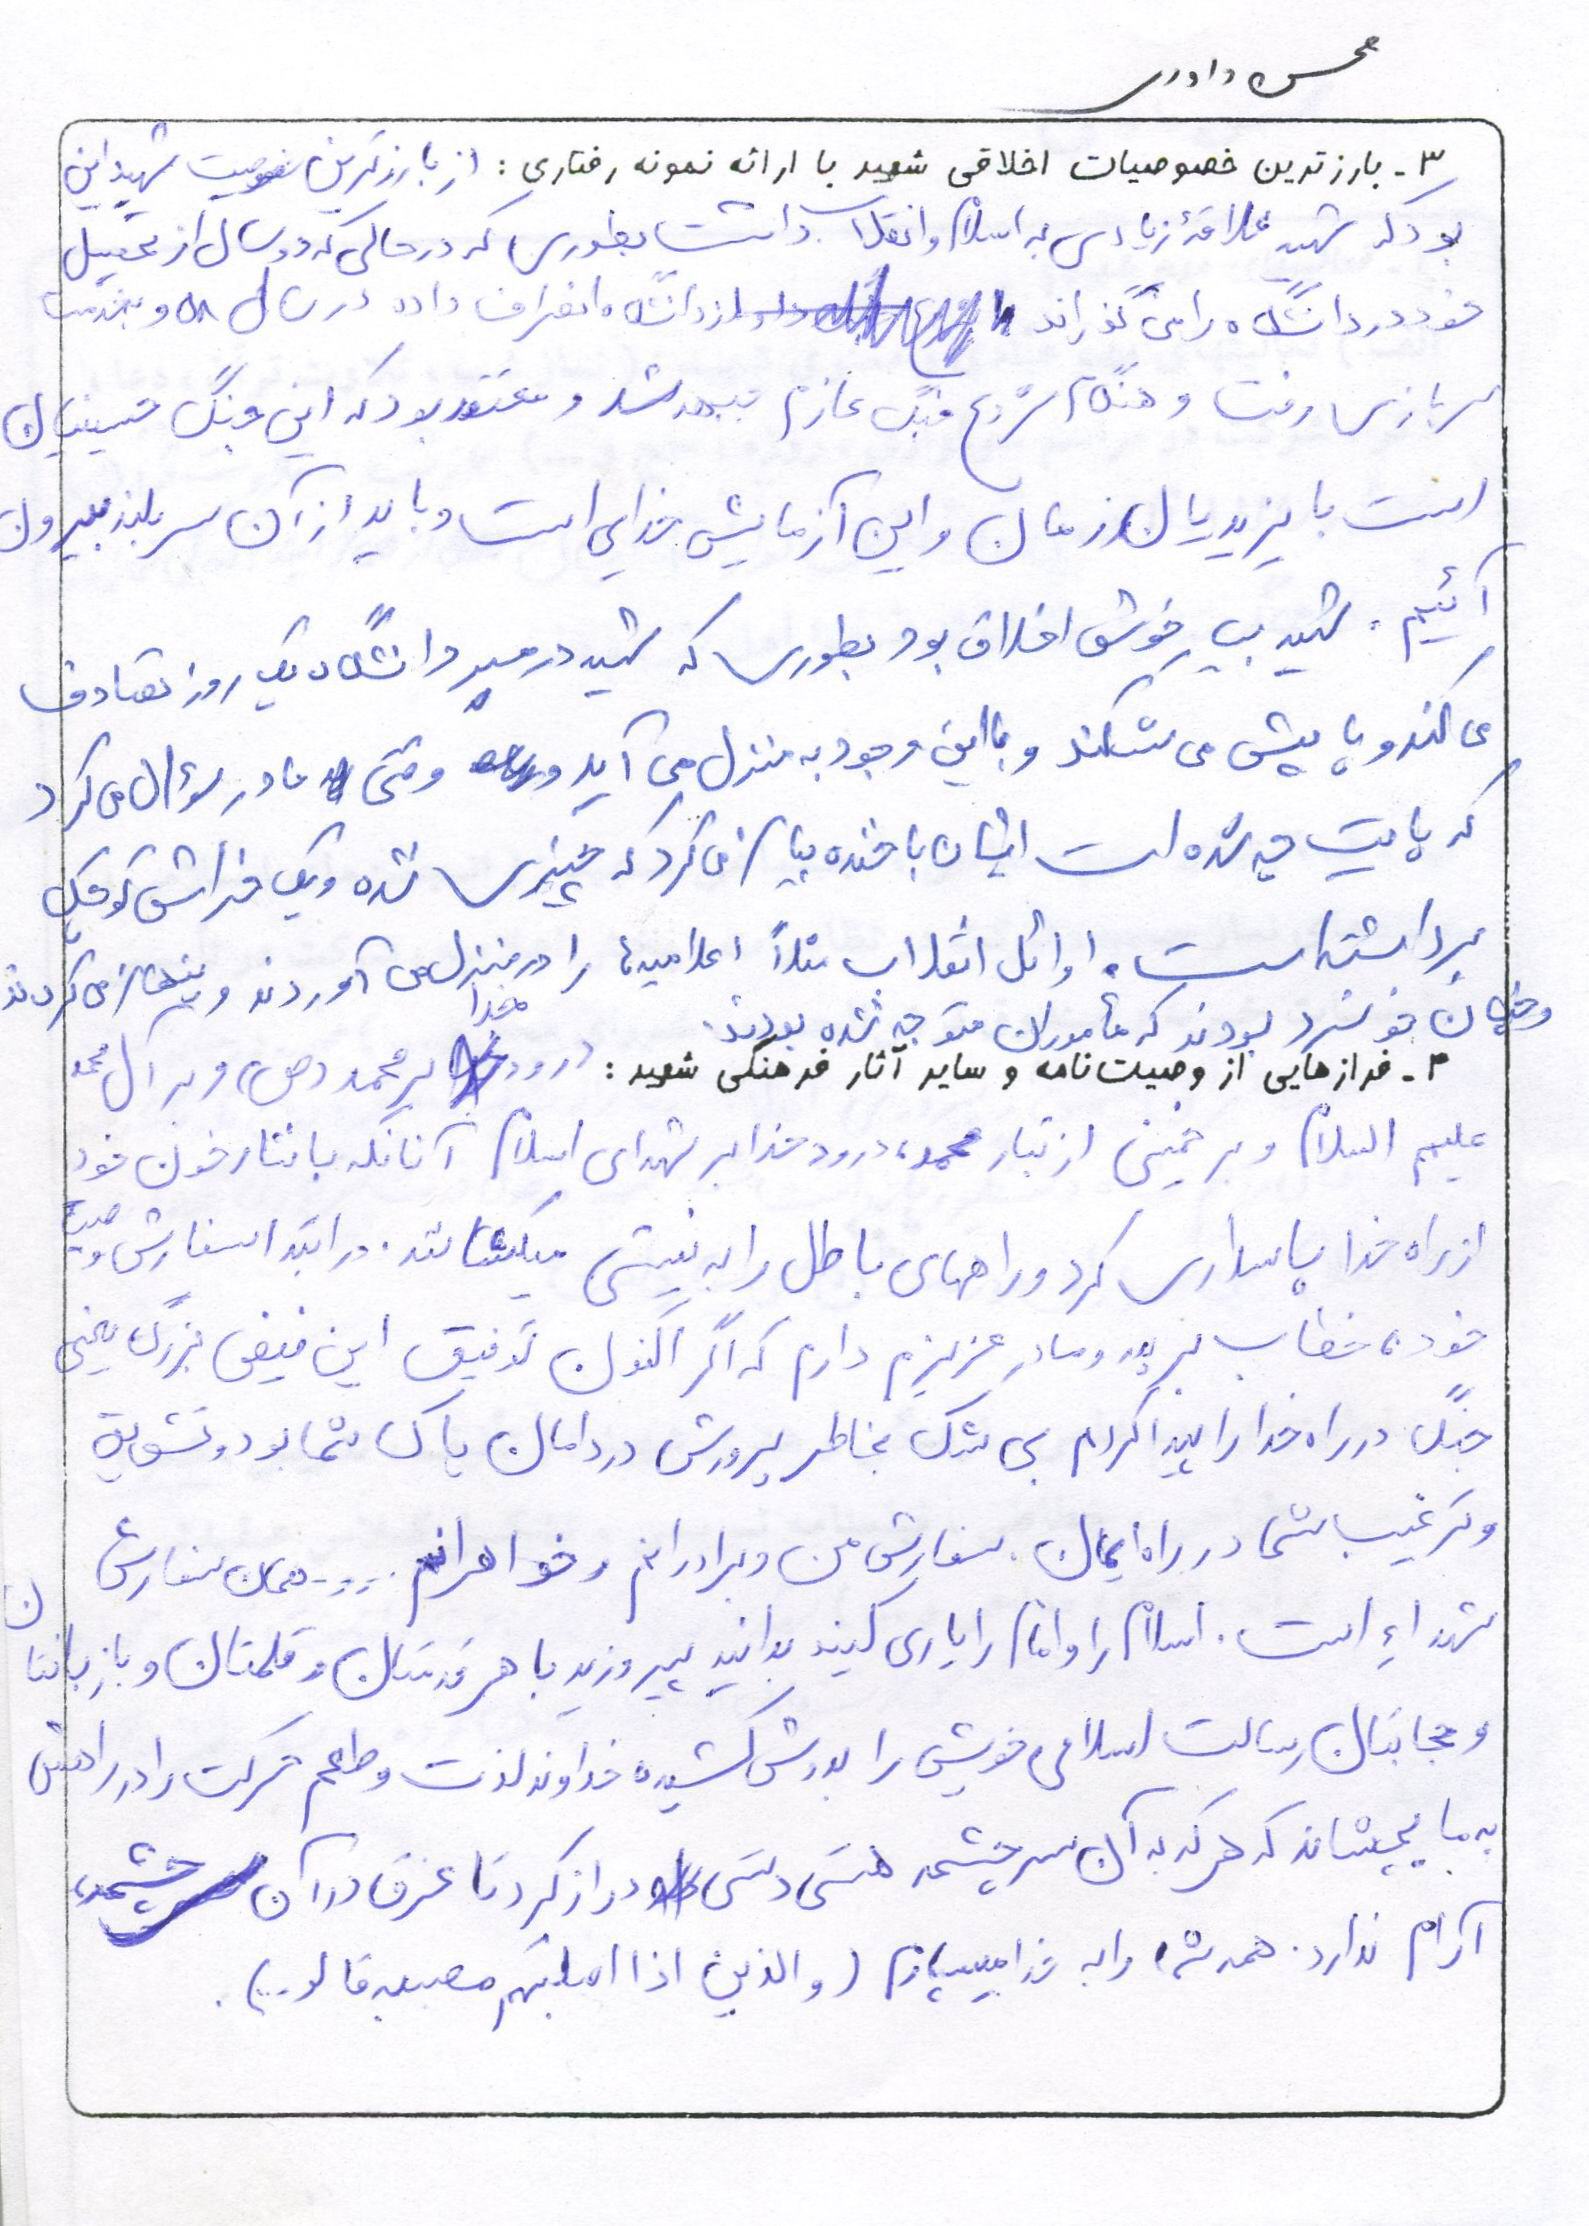 محسن داوری
۳ـ بارزترین خصوصیات اخلاقی شهید با ارائه نمونه رفتاری : از بارزترین خصوصیت شهید این
بود که شهید علاقهٔ زیادی به اسلام و انقلاب داشت بطوری که در حالی که دو سال از تحصیل
خود در دانشگاه را می گذراند از دانشگاه انصراف داده در سال ۵۸ و بخدمت
سربازی رفت و هنگام شروع جنگ عازم جبهه شد و معتقد بود که این جنگ حسینیان
است با یزیدیان زمان و این آزمایش خدایی است و باید از آن سربلند بیرون
آئیم . شهید بسیار خوش اخلاق بود بطوری که شهید در مسیر دانشگاه یک روز تصادف
می کند و پایش می شکند و با این وجود به منزل می آید و وقتی مادر سؤال می کرد
که پایت چه شده است ایشان با خنده بیان می کرد که چیزی نشده و یک خراش کوچک
برداشته است . اوائل انقلاب مثلاً اعلامیه ها را در منزل می آوردند و پنهان می کردند
و خونسرد بودند که مأموران متوجه نشده بودند .
۴ـ فرازهایی از وصیت‌نامه و سایر آثار فرهنگی شهید : درود خدا بر محمد (ص) و بر آل محمد
علیهم السلام و بر خمینی از تبار محمد ، درود خدا بر شهدای اسلام آنانکه با نثار خون خود
از راه خدا پاسداری کرد و راههای باطل را به نیستی میکشانند . در ابتدا سفارش و وصیت
خود خطاب بر پدر و مادر عزیزم دارم که اگر اکنون توفیق این فیض بزرگ یعنی
جنگ در راه خدا را پیدا کردم بی شک بخاطر پرورش در دامان پاک شما بود و تشویق
و ترغیب شما در راه ایمان . سفارش من و برادرانم و خواهرانم ..... همان سفارش
شهداء است . اسلام را و امام را یاری کنید بدانید پیروزید با هر قدمتان و قلمتان و با زبانتان
و جانتان رسالت اسلامی خویش را بدوش کشیده خداوند لذت و طعم حرکت را در راهش
به ما بچشاند که هر که به آن سرچشمه هستی دستی دراز کرد تا غرق در آن سرچشمه
آرام ندارد . همه شما را به خدا میسپارم (والذین اذا اصابتهم مصیبه قالو ...) .